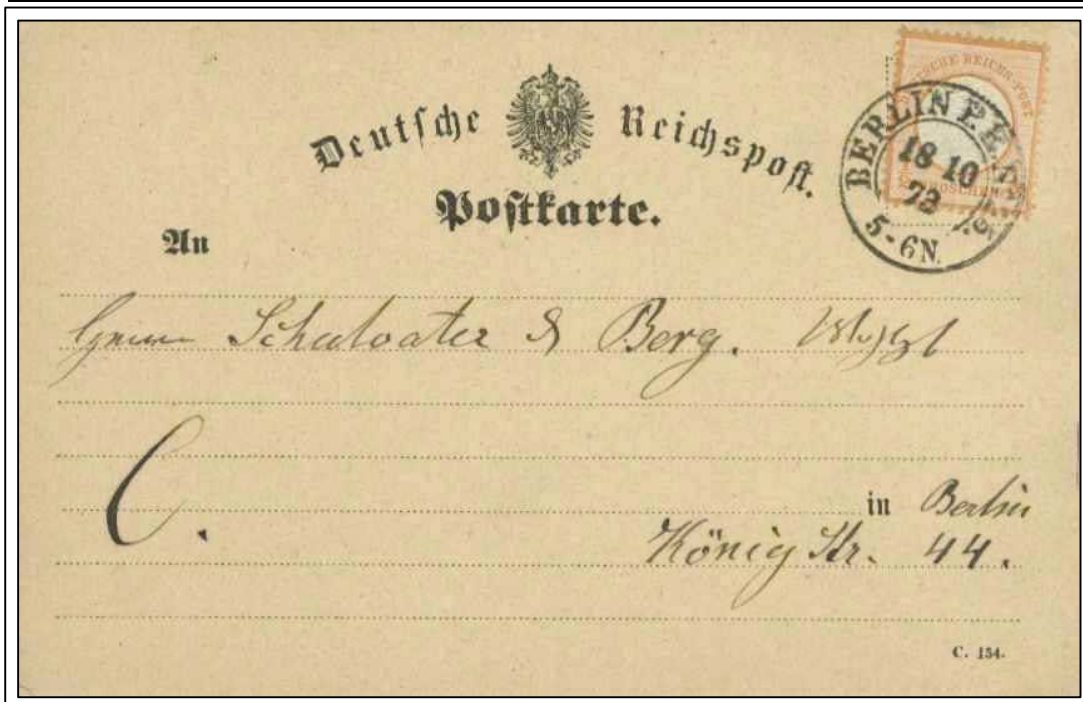 Deutsche Reichspost.
Postkarte.
DEUTSCHE REICHS-POST
BERLIN P.E.
18 10
72
5-6N.
An
Schulvater & Berg.
C.
in Berlin
König Str. 44.
C. 154.